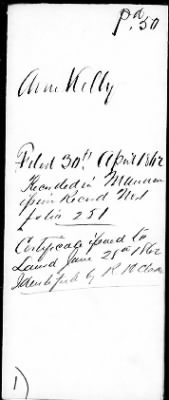 pd. 50
Ann Kelly
Filed 30th April 1862
Recorded in Manumission Record No 1
folio 251
Certificate issued to
Laund June 28th 1862
Identified by R H Clark
1)